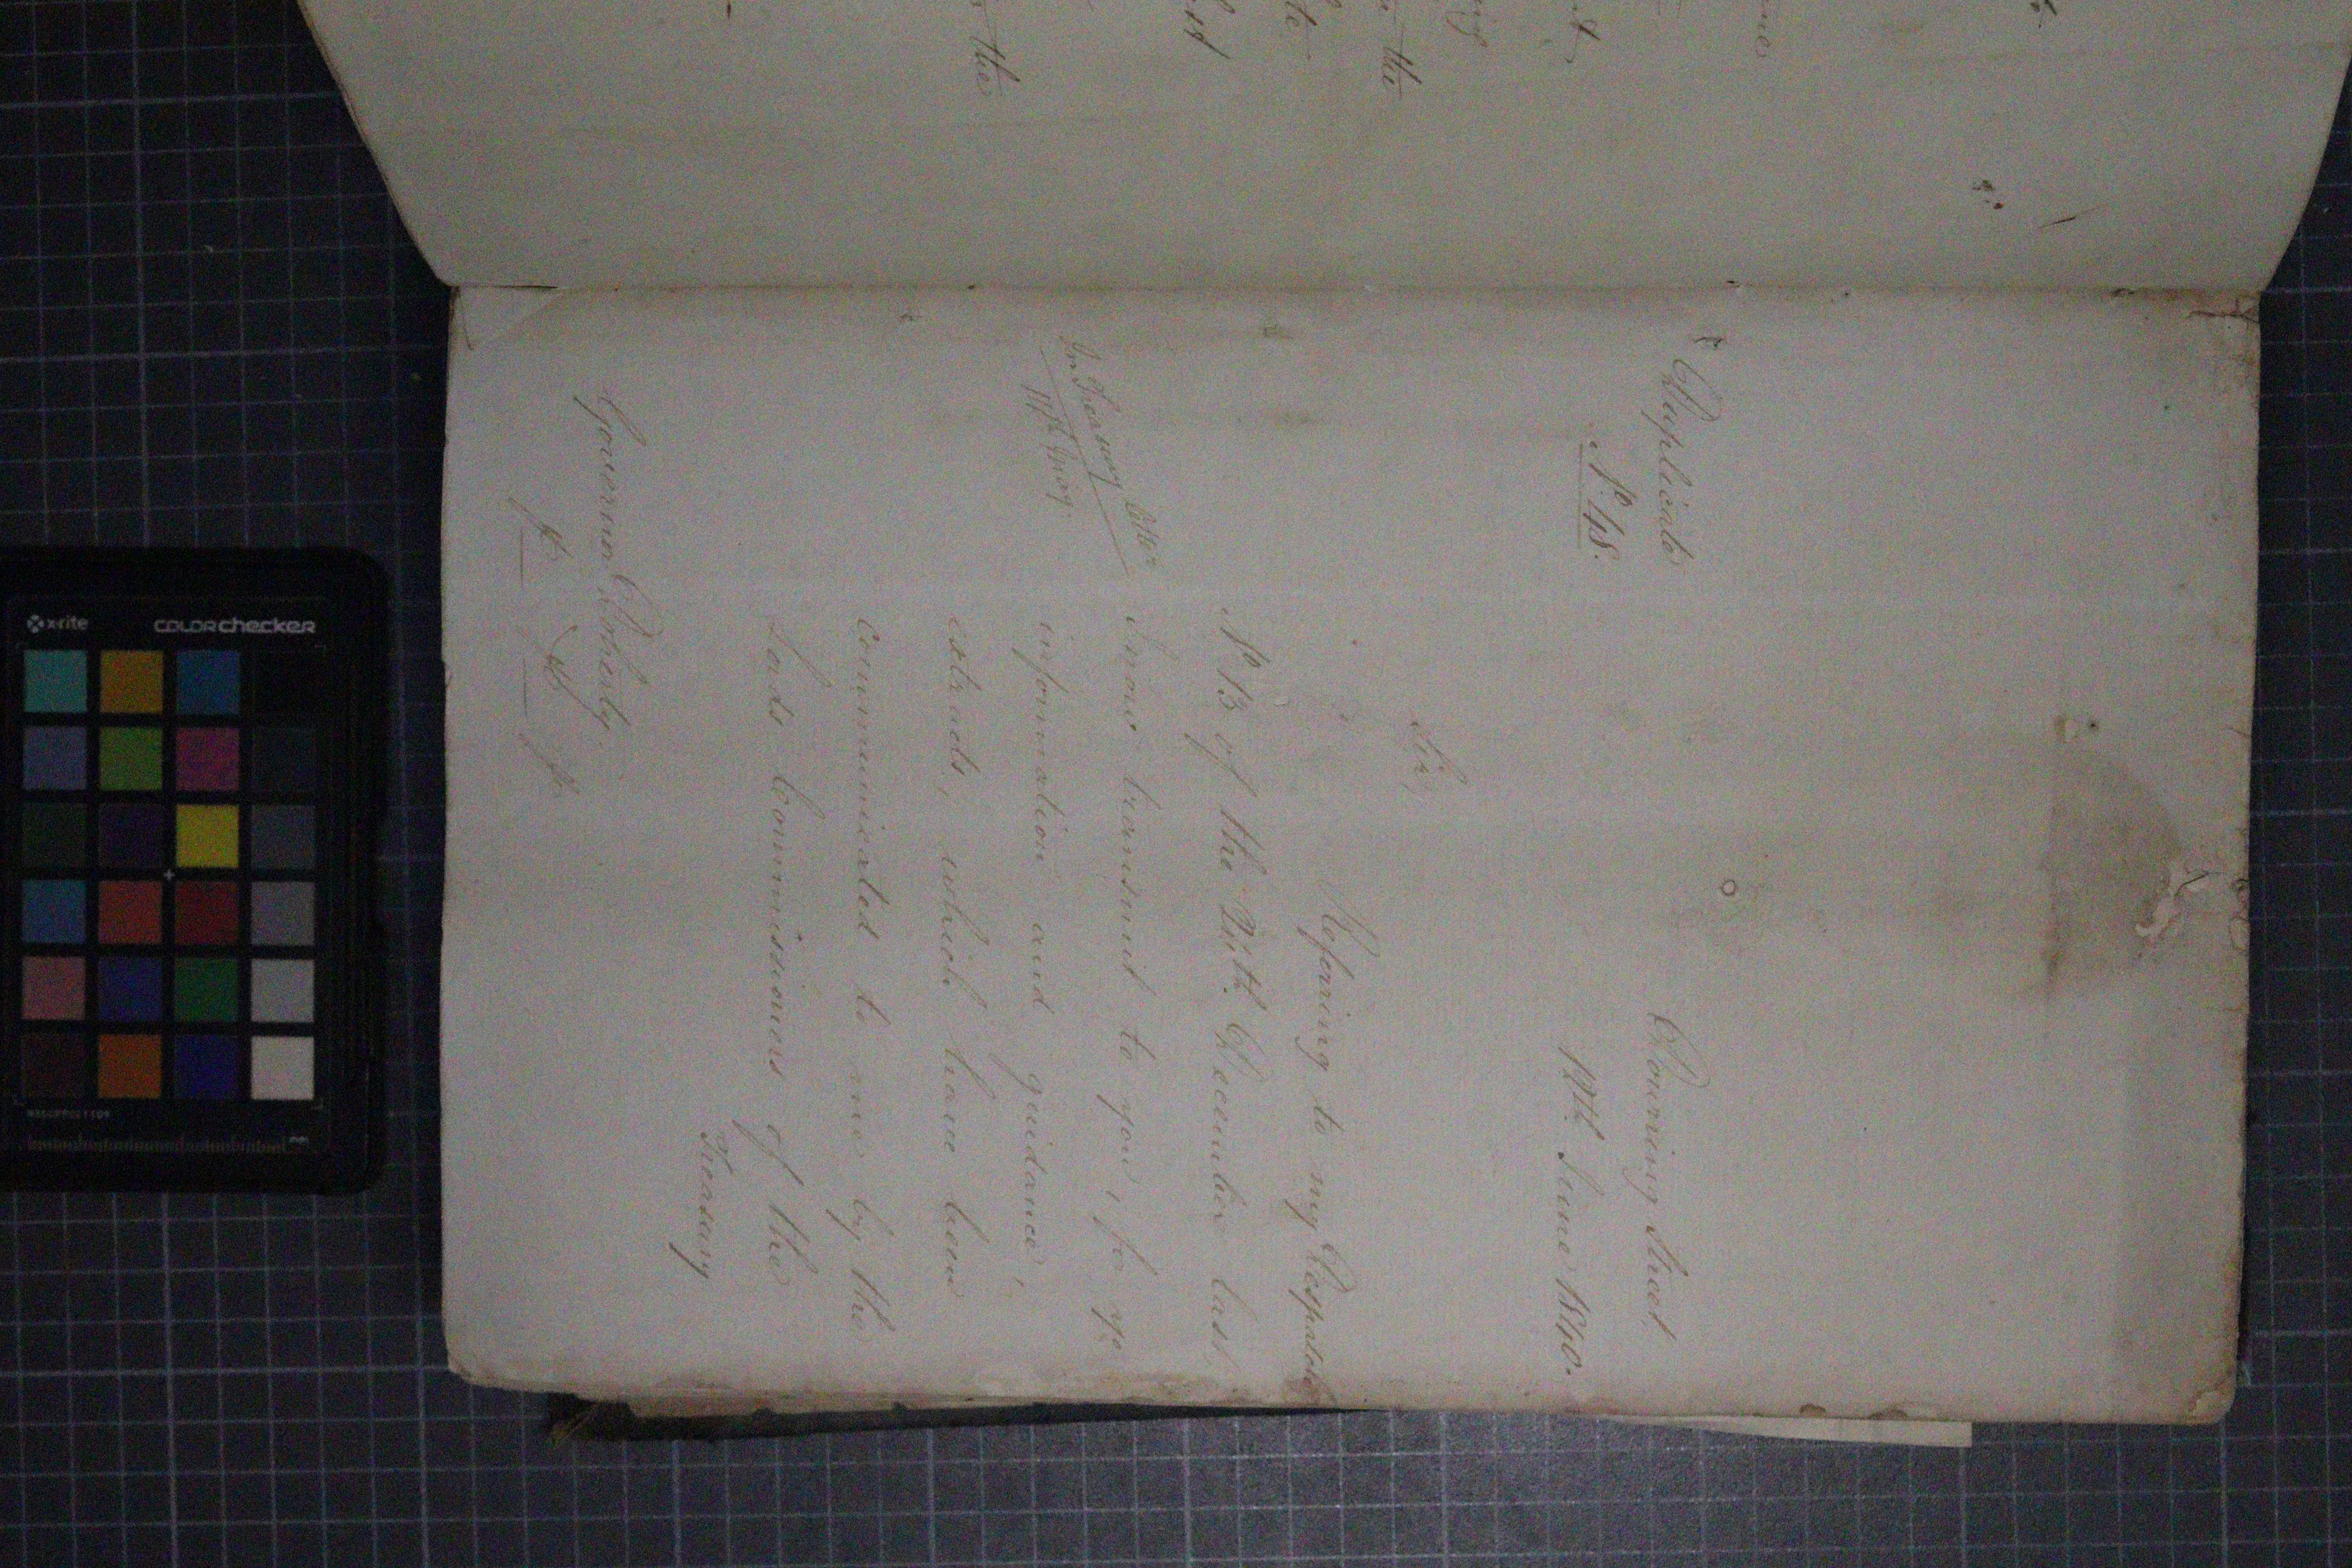 Duplicate
Nº 48.
Downing Street,
12th June 1840.
Sir,
Referring to my Despatch
Nº 13 of the 24th December last,
I now transmit to you, for yr
information and guidance,
extracts, which have been
communicated to me by the
Lords Commissioners of the
Treasury
In Treasury Letter
11th May
Governor Doherty.
&c &c &c
the
the
x-rite colorchecker